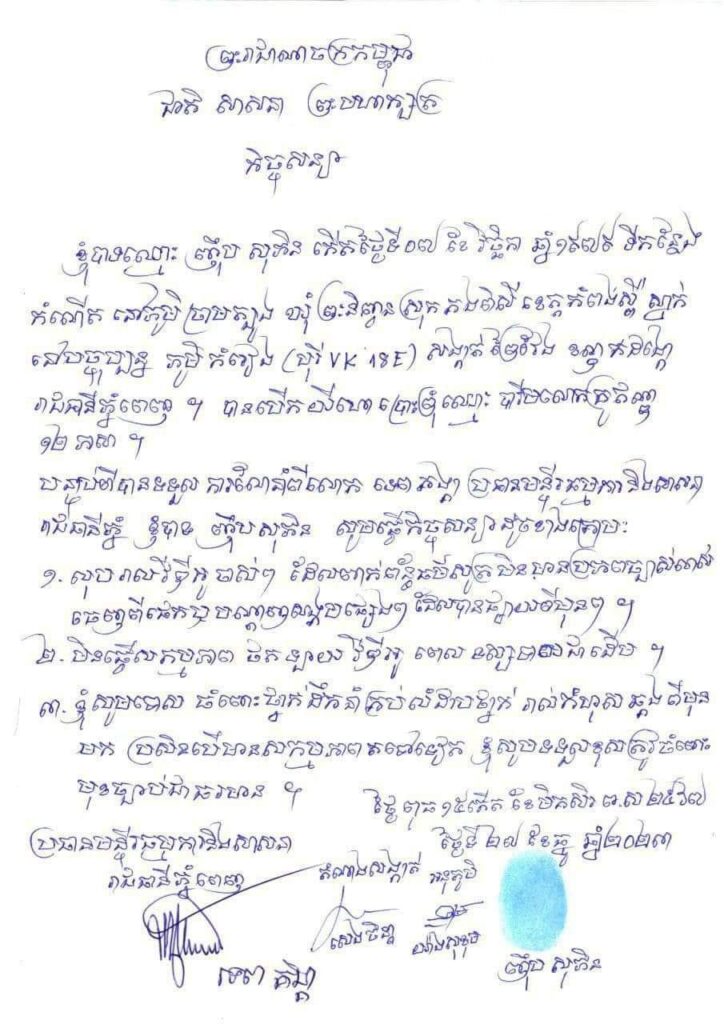 ព្រះរាជាណាចក្រកម្ពុជា
ជាតិ សាសនា ព្រះមហាក្សត្រ
កិច្ចសន្យា
ខ្ញុំបាទឈ្មោះ ញ៉ឹប សុភិន កើតថ្ងៃទី០៧ ខែ វិច្ឆិកា ឆ្នាំ១៩៧៩ ទីកន្លែង
កំណើត នៅភូមិ ត្បូង ឃុំ ព្រះនិព្វាន ស្រុក គងពិសី ខេត្តកំពង់ស្ពឺ ស្នាក់
នៅបច្ចុប្បន្ន ភូមិ កំរៀង (បុរី VK 18E) សង្កាត់ ព្រៃវែង ខណ្ឌ កំបូល
រាជធានីភ្នំពេញ ។ បានបើក យីហោ ឈ្មោះ បារមីលោកគ្រូ
១២ ភាសា ។
បន្ទាប់ពីបានទទួល ការណែនាំពីលោក ទេព ប្រធានមន្ទីរធម្មការនិងសាសនា
រាជធានីភ្នំ ខ្ញុំបាទ ញ៉ឹប សុភិន សូមធ្វើកិច្ចសន្យាដូចខាងក្រោមៈ
១. លុប រាល់វីដីអូ ចាស់ៗ ដែលពាក់ព័ន្ធធម៌សូត្រមិនមានប្រភពច្បាស់លាស់
ចេញពីផេកឬបណ្តាញសង្គមផ្សេងៗ ដែលបានផ្សាយពីមុនៗ ។
២. មិនធ្វើសកម្មភាព ថត ឡាយ វីដីអូ ពោល ជាដើម ។
៣. ខ្ញុំសូមទោស ចំពោះថ្នាក់ដឹកនាំគ្រប់លំដាប់ថ្នាក់ រាល់កំហុសឆ្គងពីមុន
មក ប្រសិនបើមានសកម្មភាពតទៅទៀត ខ្ញុំសូមទទួលខុសត្រូវចំពោះ
មុខច្បាប់ជាធរមាន ។
ថ្ងៃ ពុធ ១៥កើត ខែមិគសិរ ព.ស ២៥៦៧
ប្រធានមន្ទីរធម្មការនិងសាសនា ថ្ងៃទី ២៧ ខែធ្នូ ឆ្នាំ២០២៣
រាជធានីភ្នំពេញ តំណាងសង្កាត់ អនុភូមិ
សេង ចិន្តា
ទេព ញ៉ឹប សុភិន